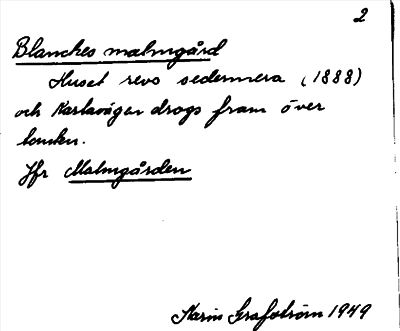 2
Blanches malmgård
Huset revs sedermera (1888)
och Karlavägen drogs fram över
tomten.
Jfr Malmgården
Karin Grafström 1949